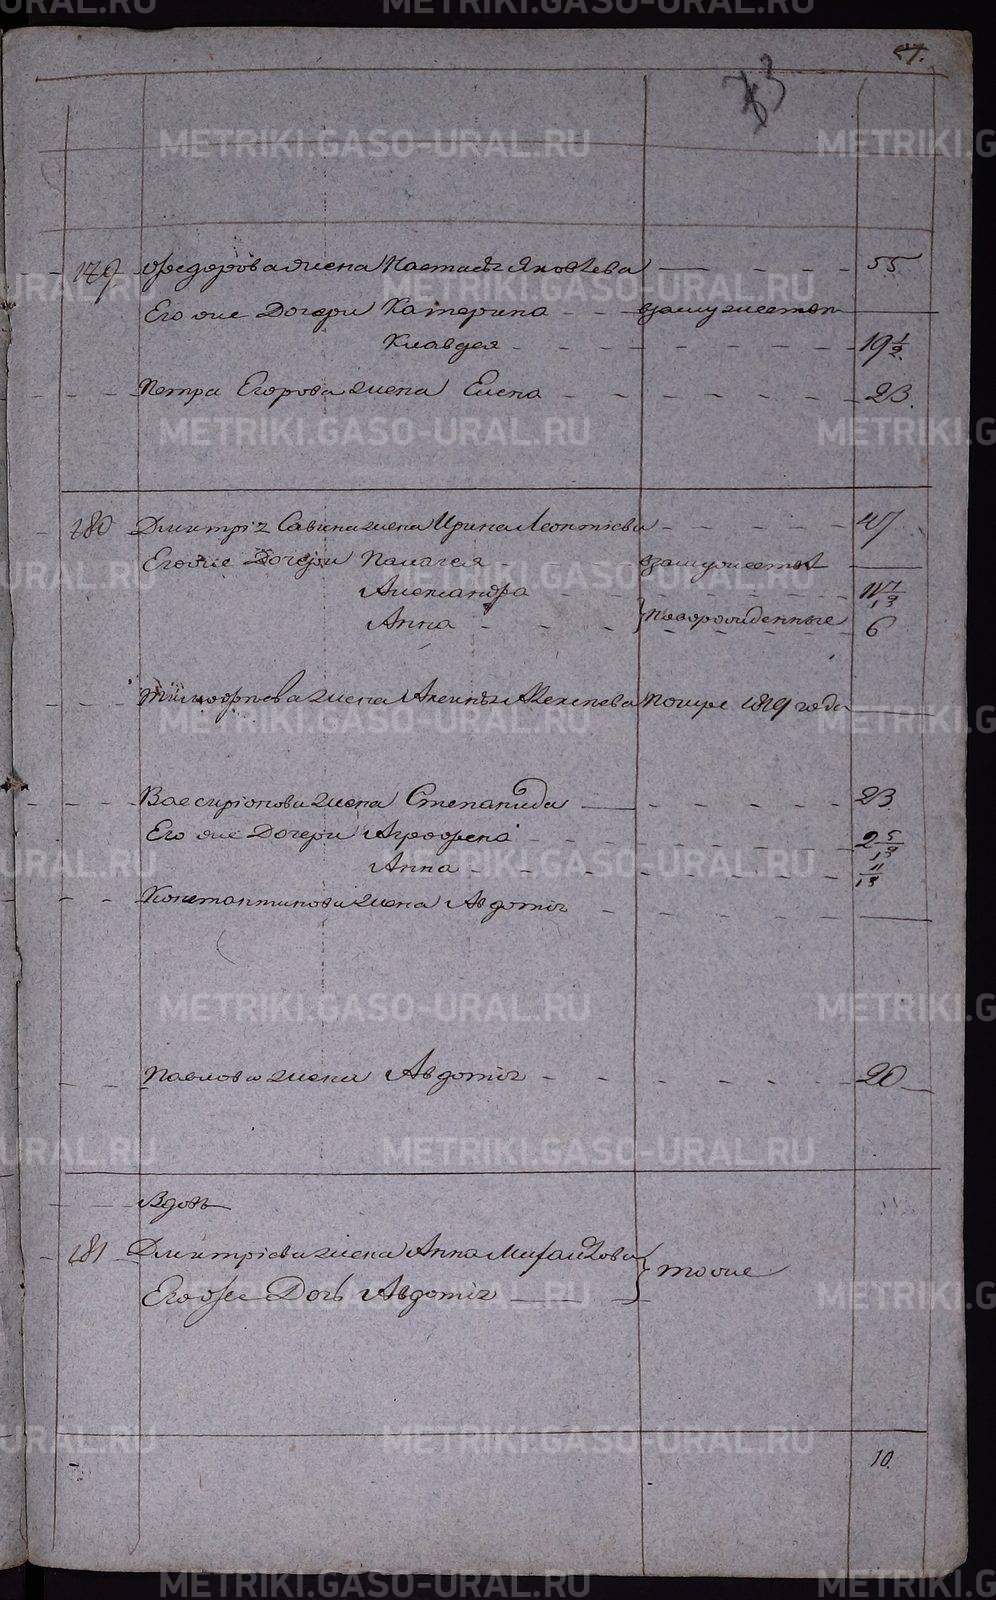 57.
73
179 Федорова жена Настасья Яковлева 55
Его же Дочери Катерина взамужестве
Клавдея 19 1/2
Петра Егорова жена Елена 23.
180 Дмитрія Савина жена Ирина Леонтіева 47
Его же Дочери Палагея взамужестве
Александра
Анна новорожденные 6
Тимофеева жена Алексеева помре 1819 года
жена Степанида 23
Его же Дочери Агрофена 2 5/12
Анна 11/12
Константинова жена Авдотія
Павлова жена Авдотія 20
Вдовъ
181 Дмитріева жена Анна Михайлова
Его же Дочь Авдотія тоже
10.
METRIKI.GASO-URAL.RU